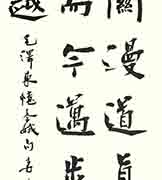 關漫道真
而今邁步
越
毛澤東憶秦娥句